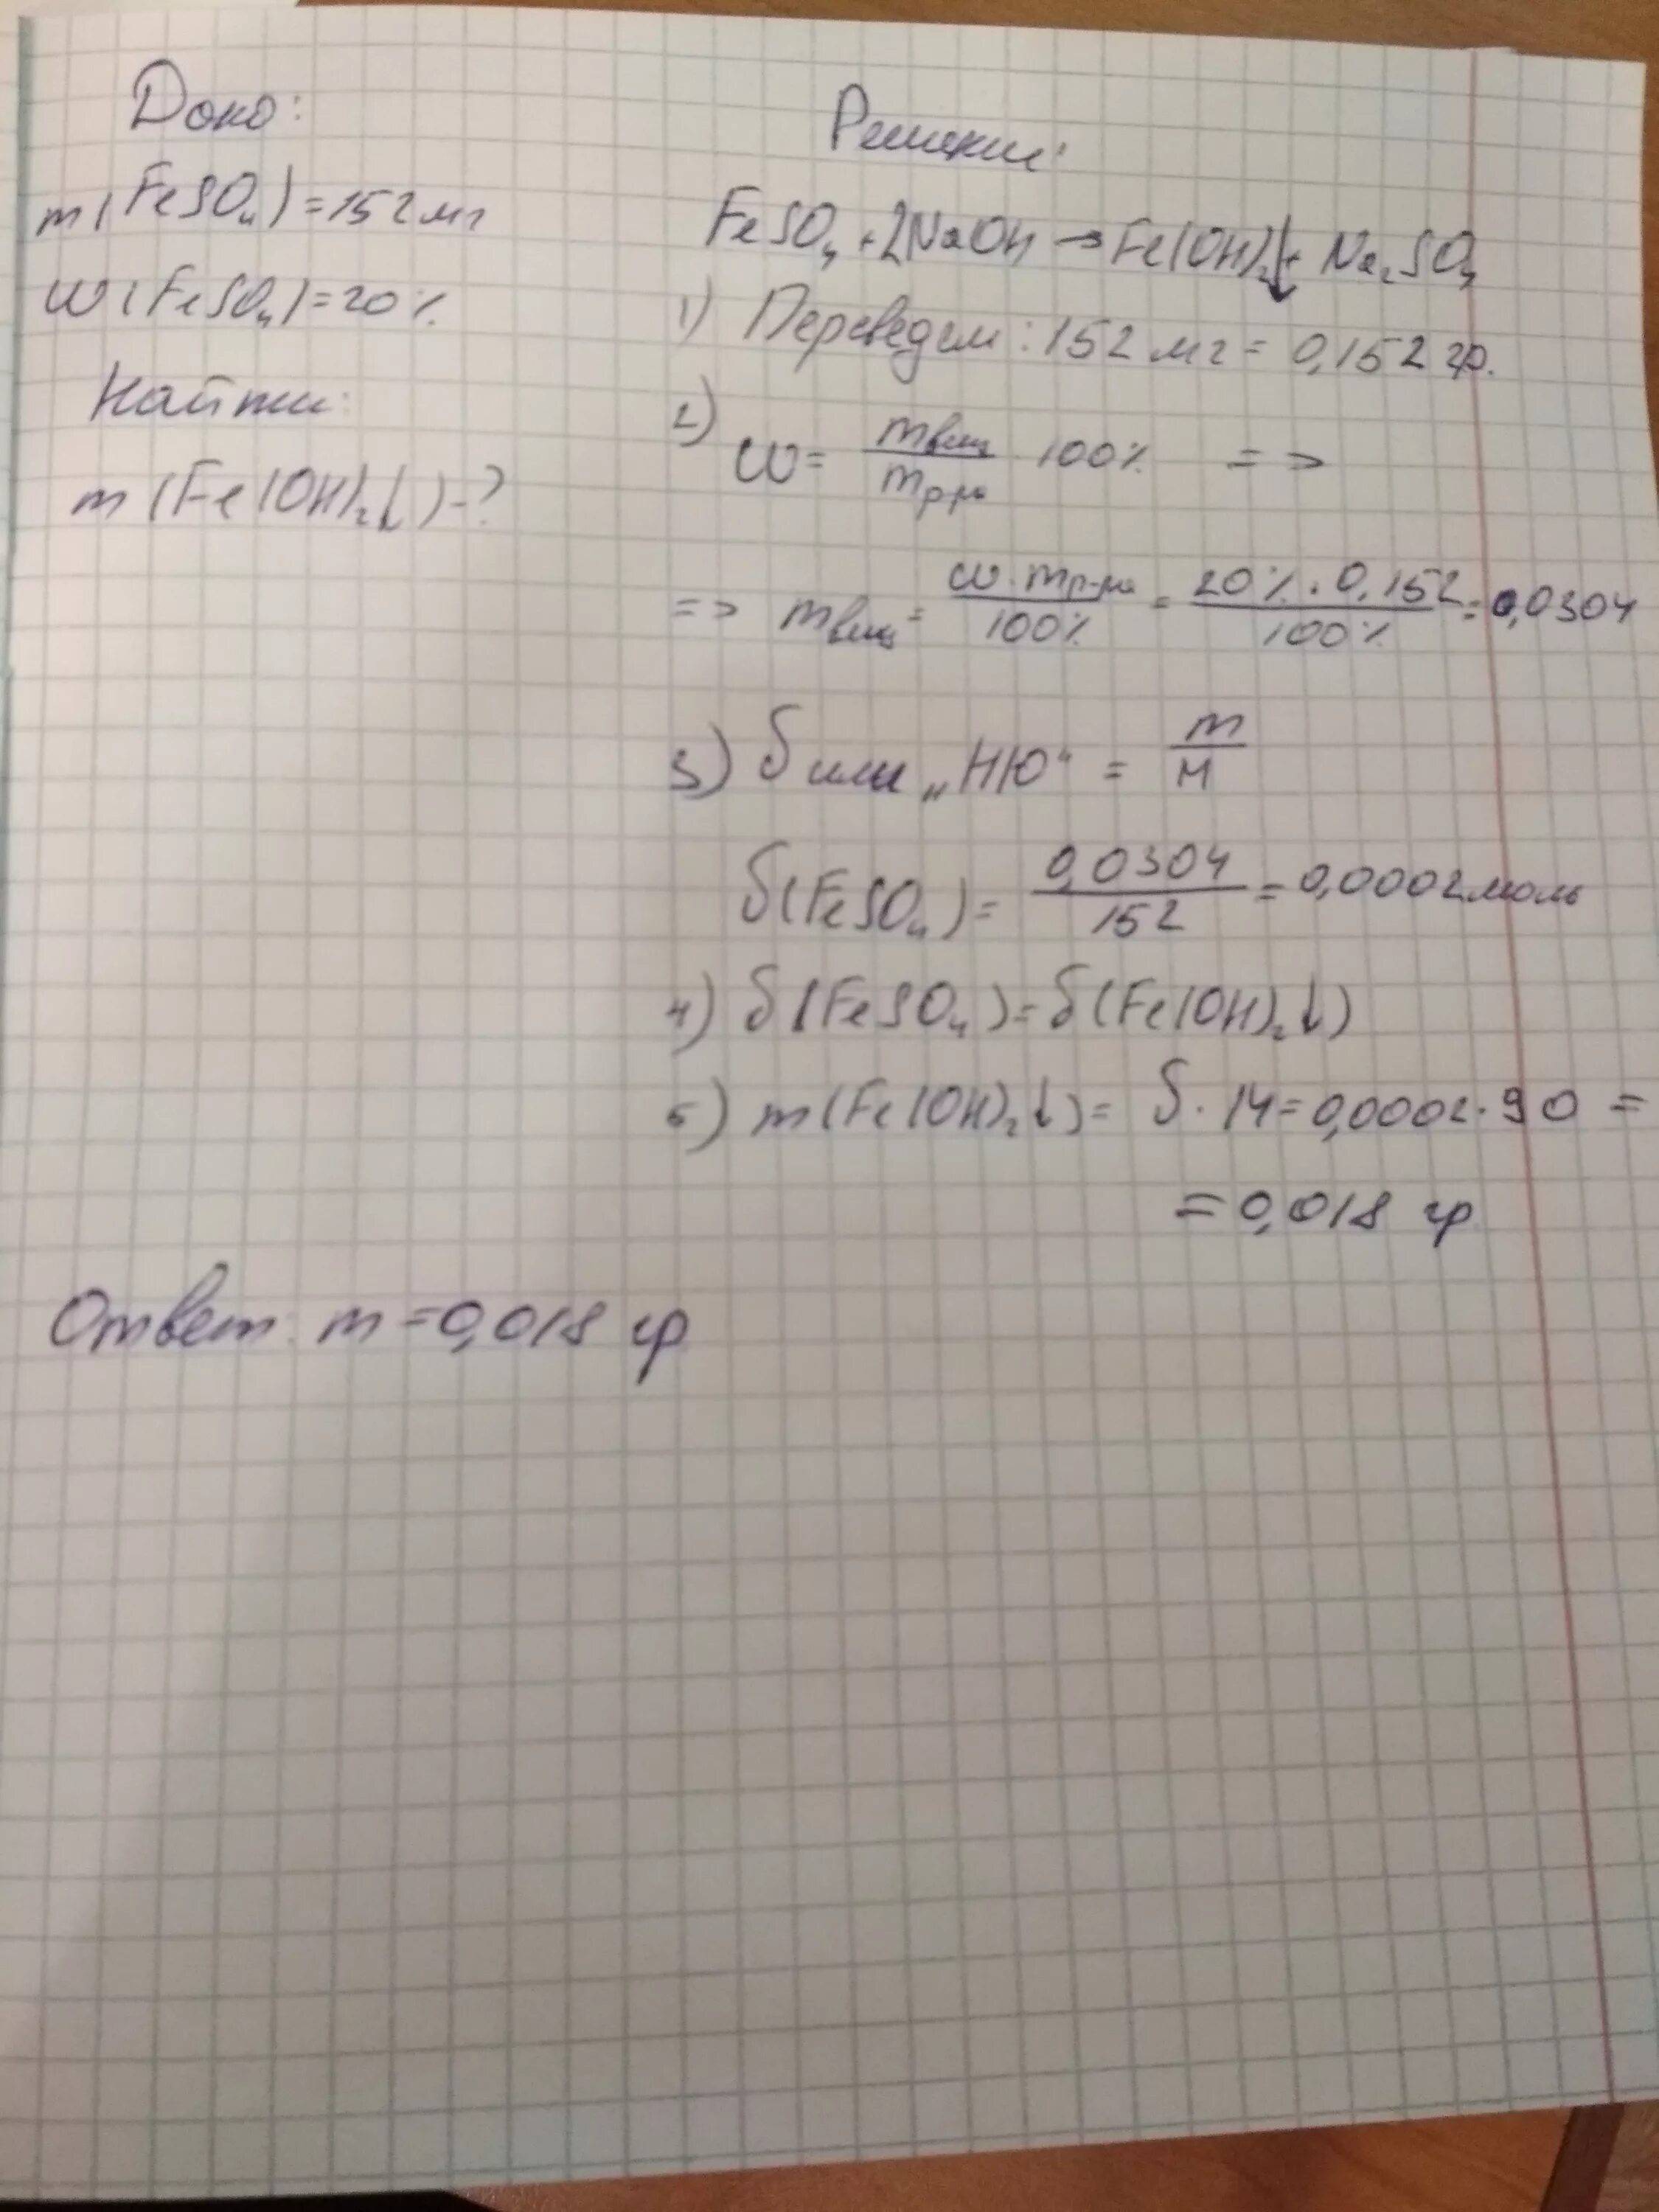 Дано:
m(FeSO₄)=152мг
ω(FeSO₄)=20%
Найти:
m(Fe(OH)₂↓)-?
Решение:
FeSO₄+2NaOH→Fe(OH)₂↓+Na₂SO₄
1) Переведем: 152 мг = 0,152 гр.
2) ω= mвещ/mр-ра 100% =>
=> mвещ = ω·mр-ра/100% = 20%·0,152/100% = 0,0304
3) δ или „НЮ“ = m/M
δ(FeSO₄)= 0,0304/152 = 0,0002 моль
4) δ(FeSO₄)=δ(Fe(OH)₂↓)
5) m(Fe(OH)₂↓)= δ·M=0,0002·90=
=0,018 гр
Ответ: m=0,018 гр